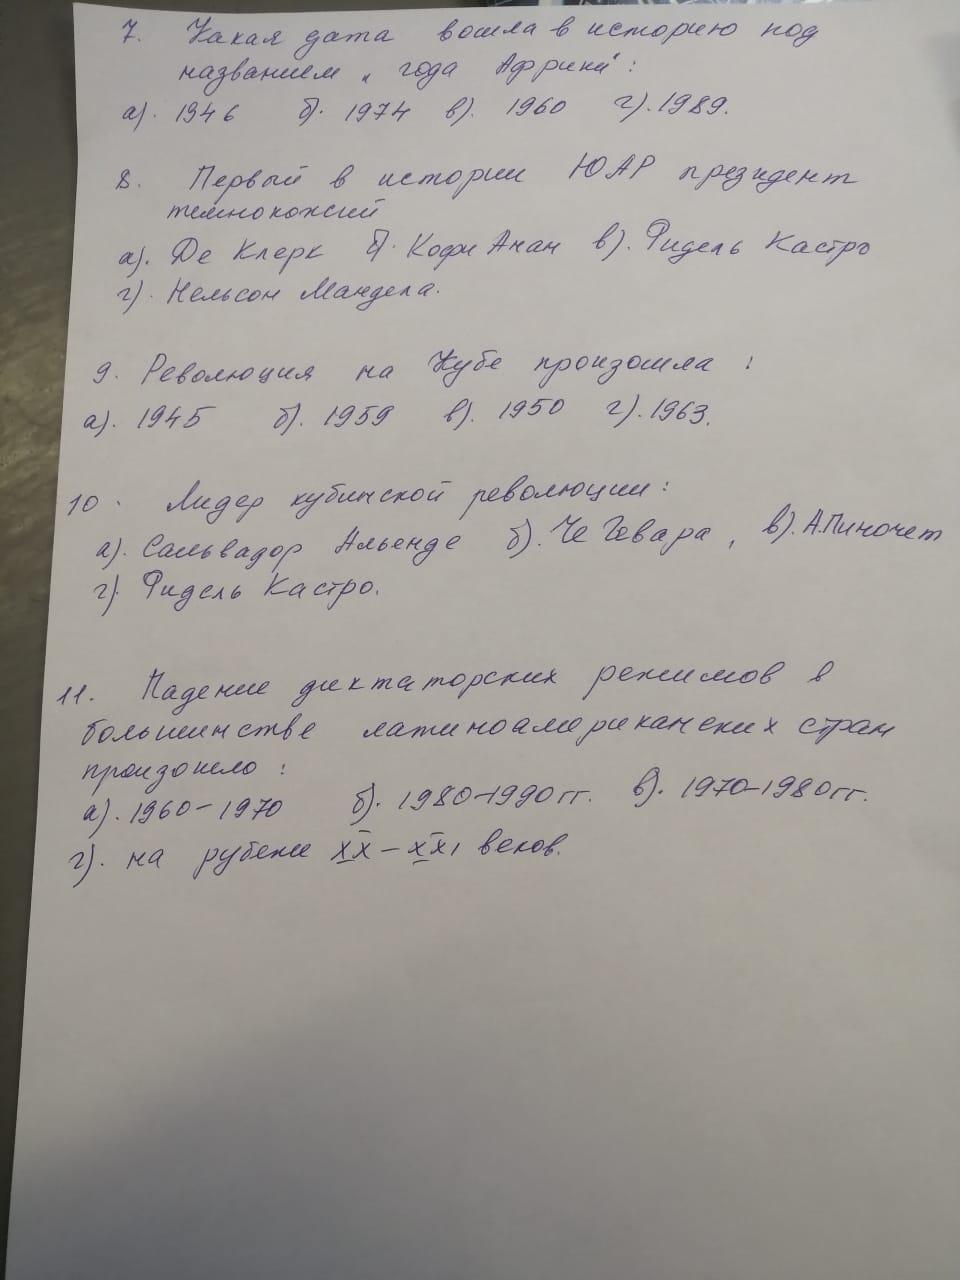 7. Какая дата вошла в историю под
названием „года Африки":
а). 1946 б). 1974 в). 1960 г). 1989.
8. Первый в истории ЮАР президент
темнокожий
а). Де Клерк б). Кофи Анан в). Фидель Кастро
г). Нельсон Мандела.
9. Революция на Кубе произошла:
а). 1945 б). 1959 в). 1950 г). 1963.
10. Лидер кубинской революции:
а). Сальвадор Альенде б). Че Гевара, в). А.Пиночет
г). Фидель Кастро.
11. Падение диктаторских режимов в
большинстве латиноамериканских стран
произошло:
а). 1960-1970 б). 1980-1990 гг. в). 1970-1980 гг.
г). на рубеже XX-XXI веков.